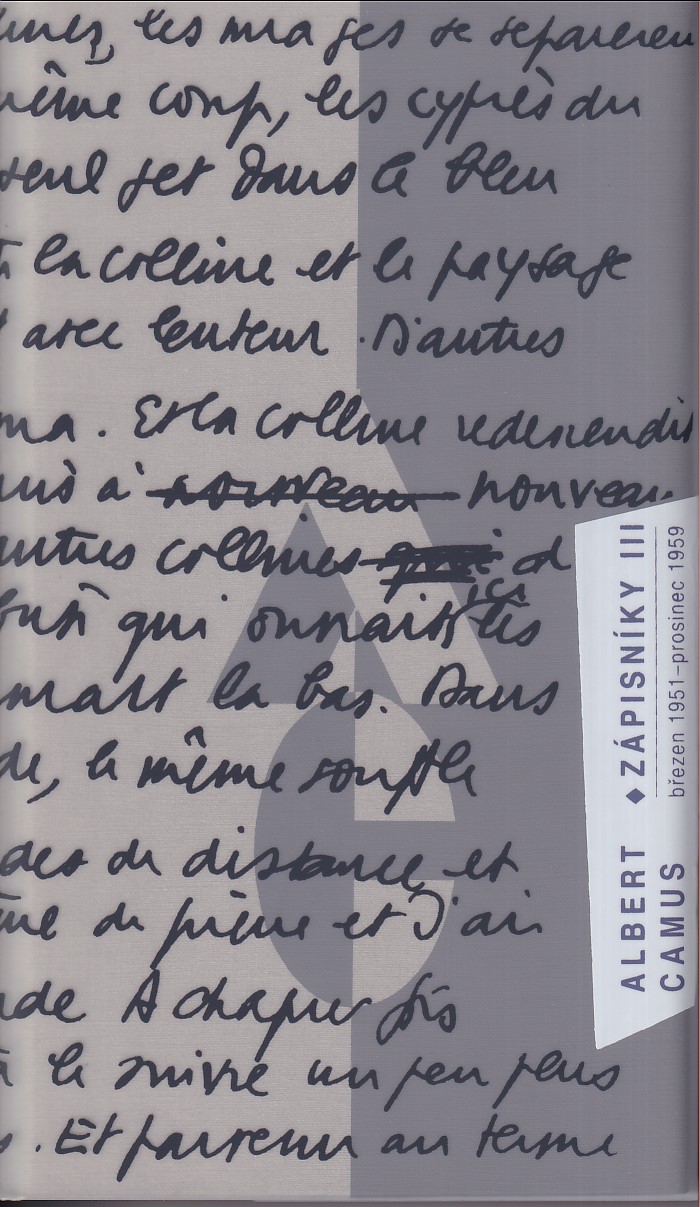 les images se séparèrent
même coup, les cyprès du
seul jet dans le bleu
la colline et le paysage
avec lenteur. D'autres
. Et la colline redescendit
à nouveau nouveau
collines qui d
qui onnaiss ici les
la bas. Dans
de, le même souffle
des de distance et
de pierre et d'air
A chaque fois
à le suivre un peu plus
. Et parvenu au terme
ALBERT CAMUS ◆ ZÁPISNÍKY III
březen 1951–prosinec 1959